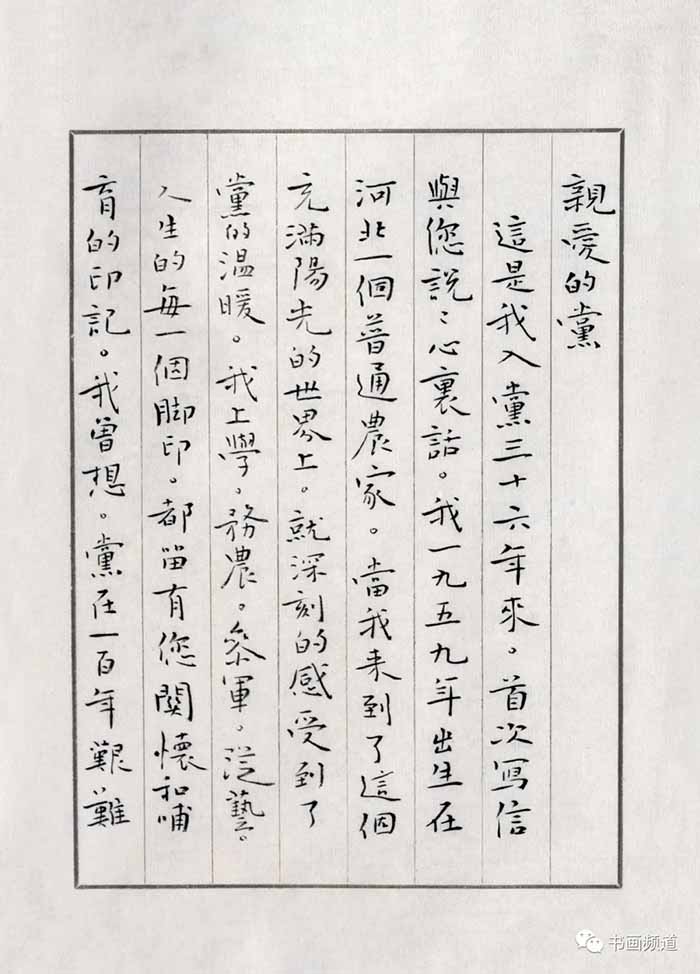 親愛的黨
這是我入黨三十六年來。首次寫信
與您説〻心裏話。我一九五九年出生在
河北一個普通農家。當我来到了這個
充滿陽光的世界上。就深刻的感受到了
黨的温暖。我上學。務農。叅軍。從藝。
人生的每一個脚印。都留有您関懷和哺
育的印記。我曾想。黨在一百年艱難
书画频道